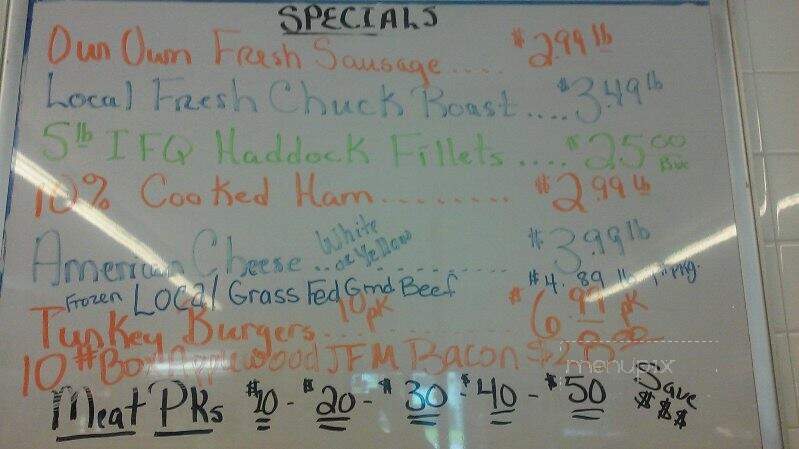 SPECIALS
Our Own Fresh Sausage.... $2.99 lb
Local Fresh Chuck Roast.... $3.49 lb
5 lb IFQ Haddock Fillets.... $25.00 Box
10% Cooked Ham........ $2.99 lb
American Cheese White or Yellow ........... $3.99 lb
Frozen Local Grass Fed Grnd Beef $4.89 lb 1# Pkg.
Turkey Burgers... 10 pk $6.99 pk
10# Box Applewood JFM Bacon
Meat PKs $10 - $20 - $30 - $40 - $50 Save $$$
menupix